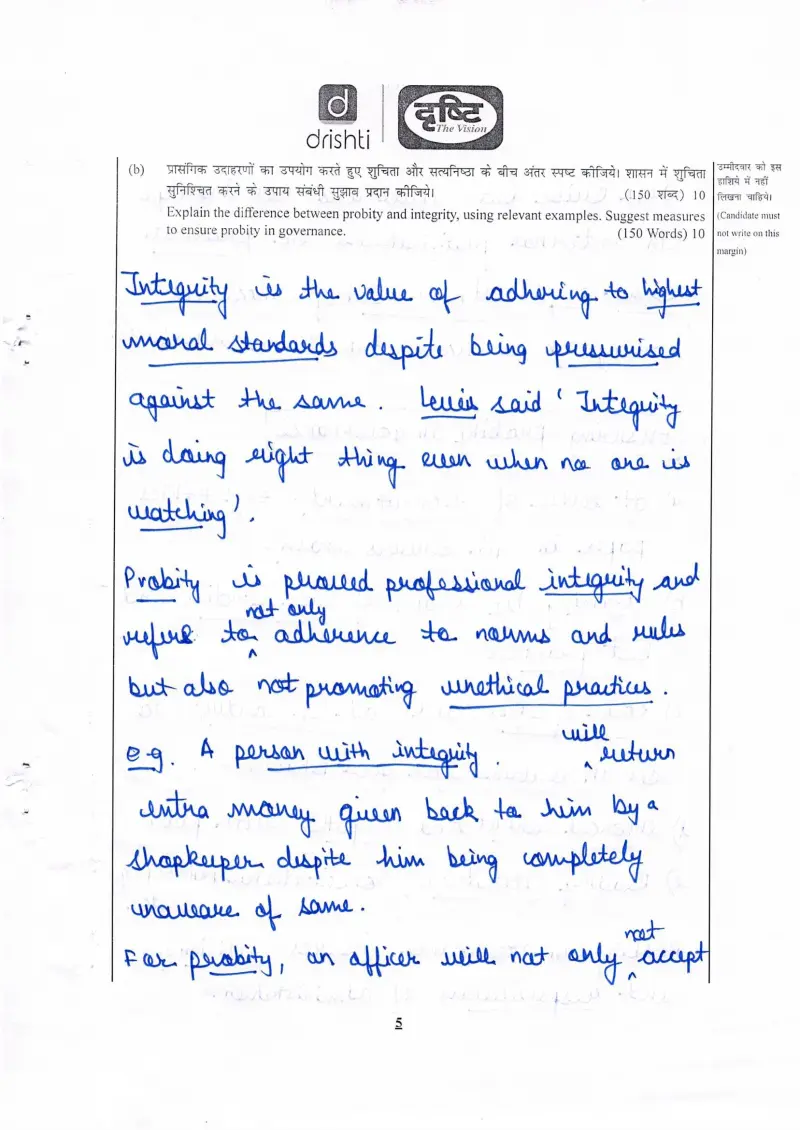 drishti
दृष्टि
The Vision
(b) प्रासंगिक उदाहरणों का उपयोग करते हुए शुचिता और सत्यनिष्ठा के बीच अंतर स्पष्ट कीजिये। शासन में शुचिता
सुनिश्चित करने के उपाय संबंधी सुझाव प्रदान कीजिये। (150 शब्द) 10
Explain the difference between probity and integrity, using relevant examples. Suggest measures
to ensure probity in governance. (150 Words) 10
उम्मीदवार को इस
हाशिये में नहीं
लिखना चाहिये।
(Candidate must
not write on this
margin)
Integrity is the value of adhering to highest
moral standards despite being pressurised
against the same. Lewis said ' Integrity
is doing right thing even when no one is
watching'.
Probity is proved professional integrity and
refers to not only adherence to norms and rules
but also not promoting unethical practices.
e.g. A person with integrity will return
extra money given back to him by a
shopkeeper despite him being completely
unaware of same.
For probity, an officer will not only not accept
5